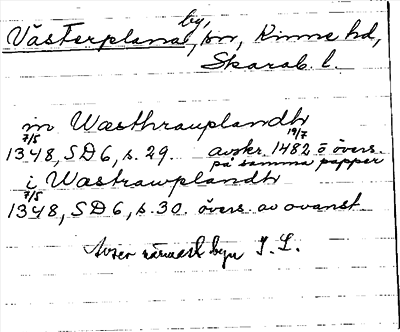 by,
Västerplana, sn, Kinne hd,
Skarab. l.
in Wæsthrauplandh
7/5 19/7
1348, SD 6, s. 29. avskr. 1482 ö övers.
på samma papper
i Wastrawplandh
7/5
1348, SD 6, s. 30. övers. av ovanst
Avser närmast byn I. L.